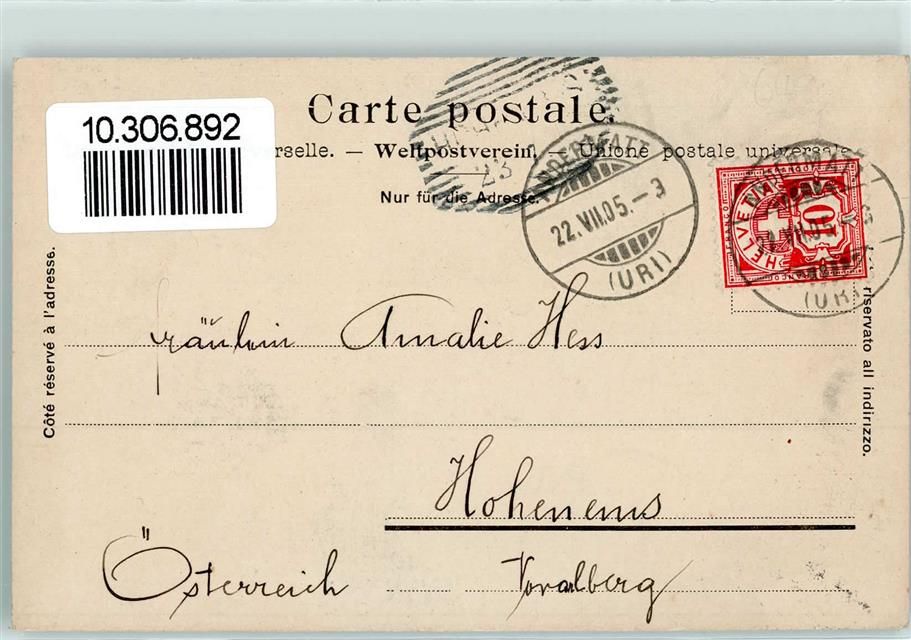 Carte postale.
10.306.892
rselle. — Weltpostverein. — Unione postale universale.
Nur für die Adresse.
23
ANDERMATT
22.VII.05.—3
(URI)
HELVETIA
10
ANDERMATT
22.VII.05.—3
(URI)
Côté réservé à l'adresse.
riservato all indirizzo.
Fräulein Amalie Hess
Hohenems
Österreich Voralberg